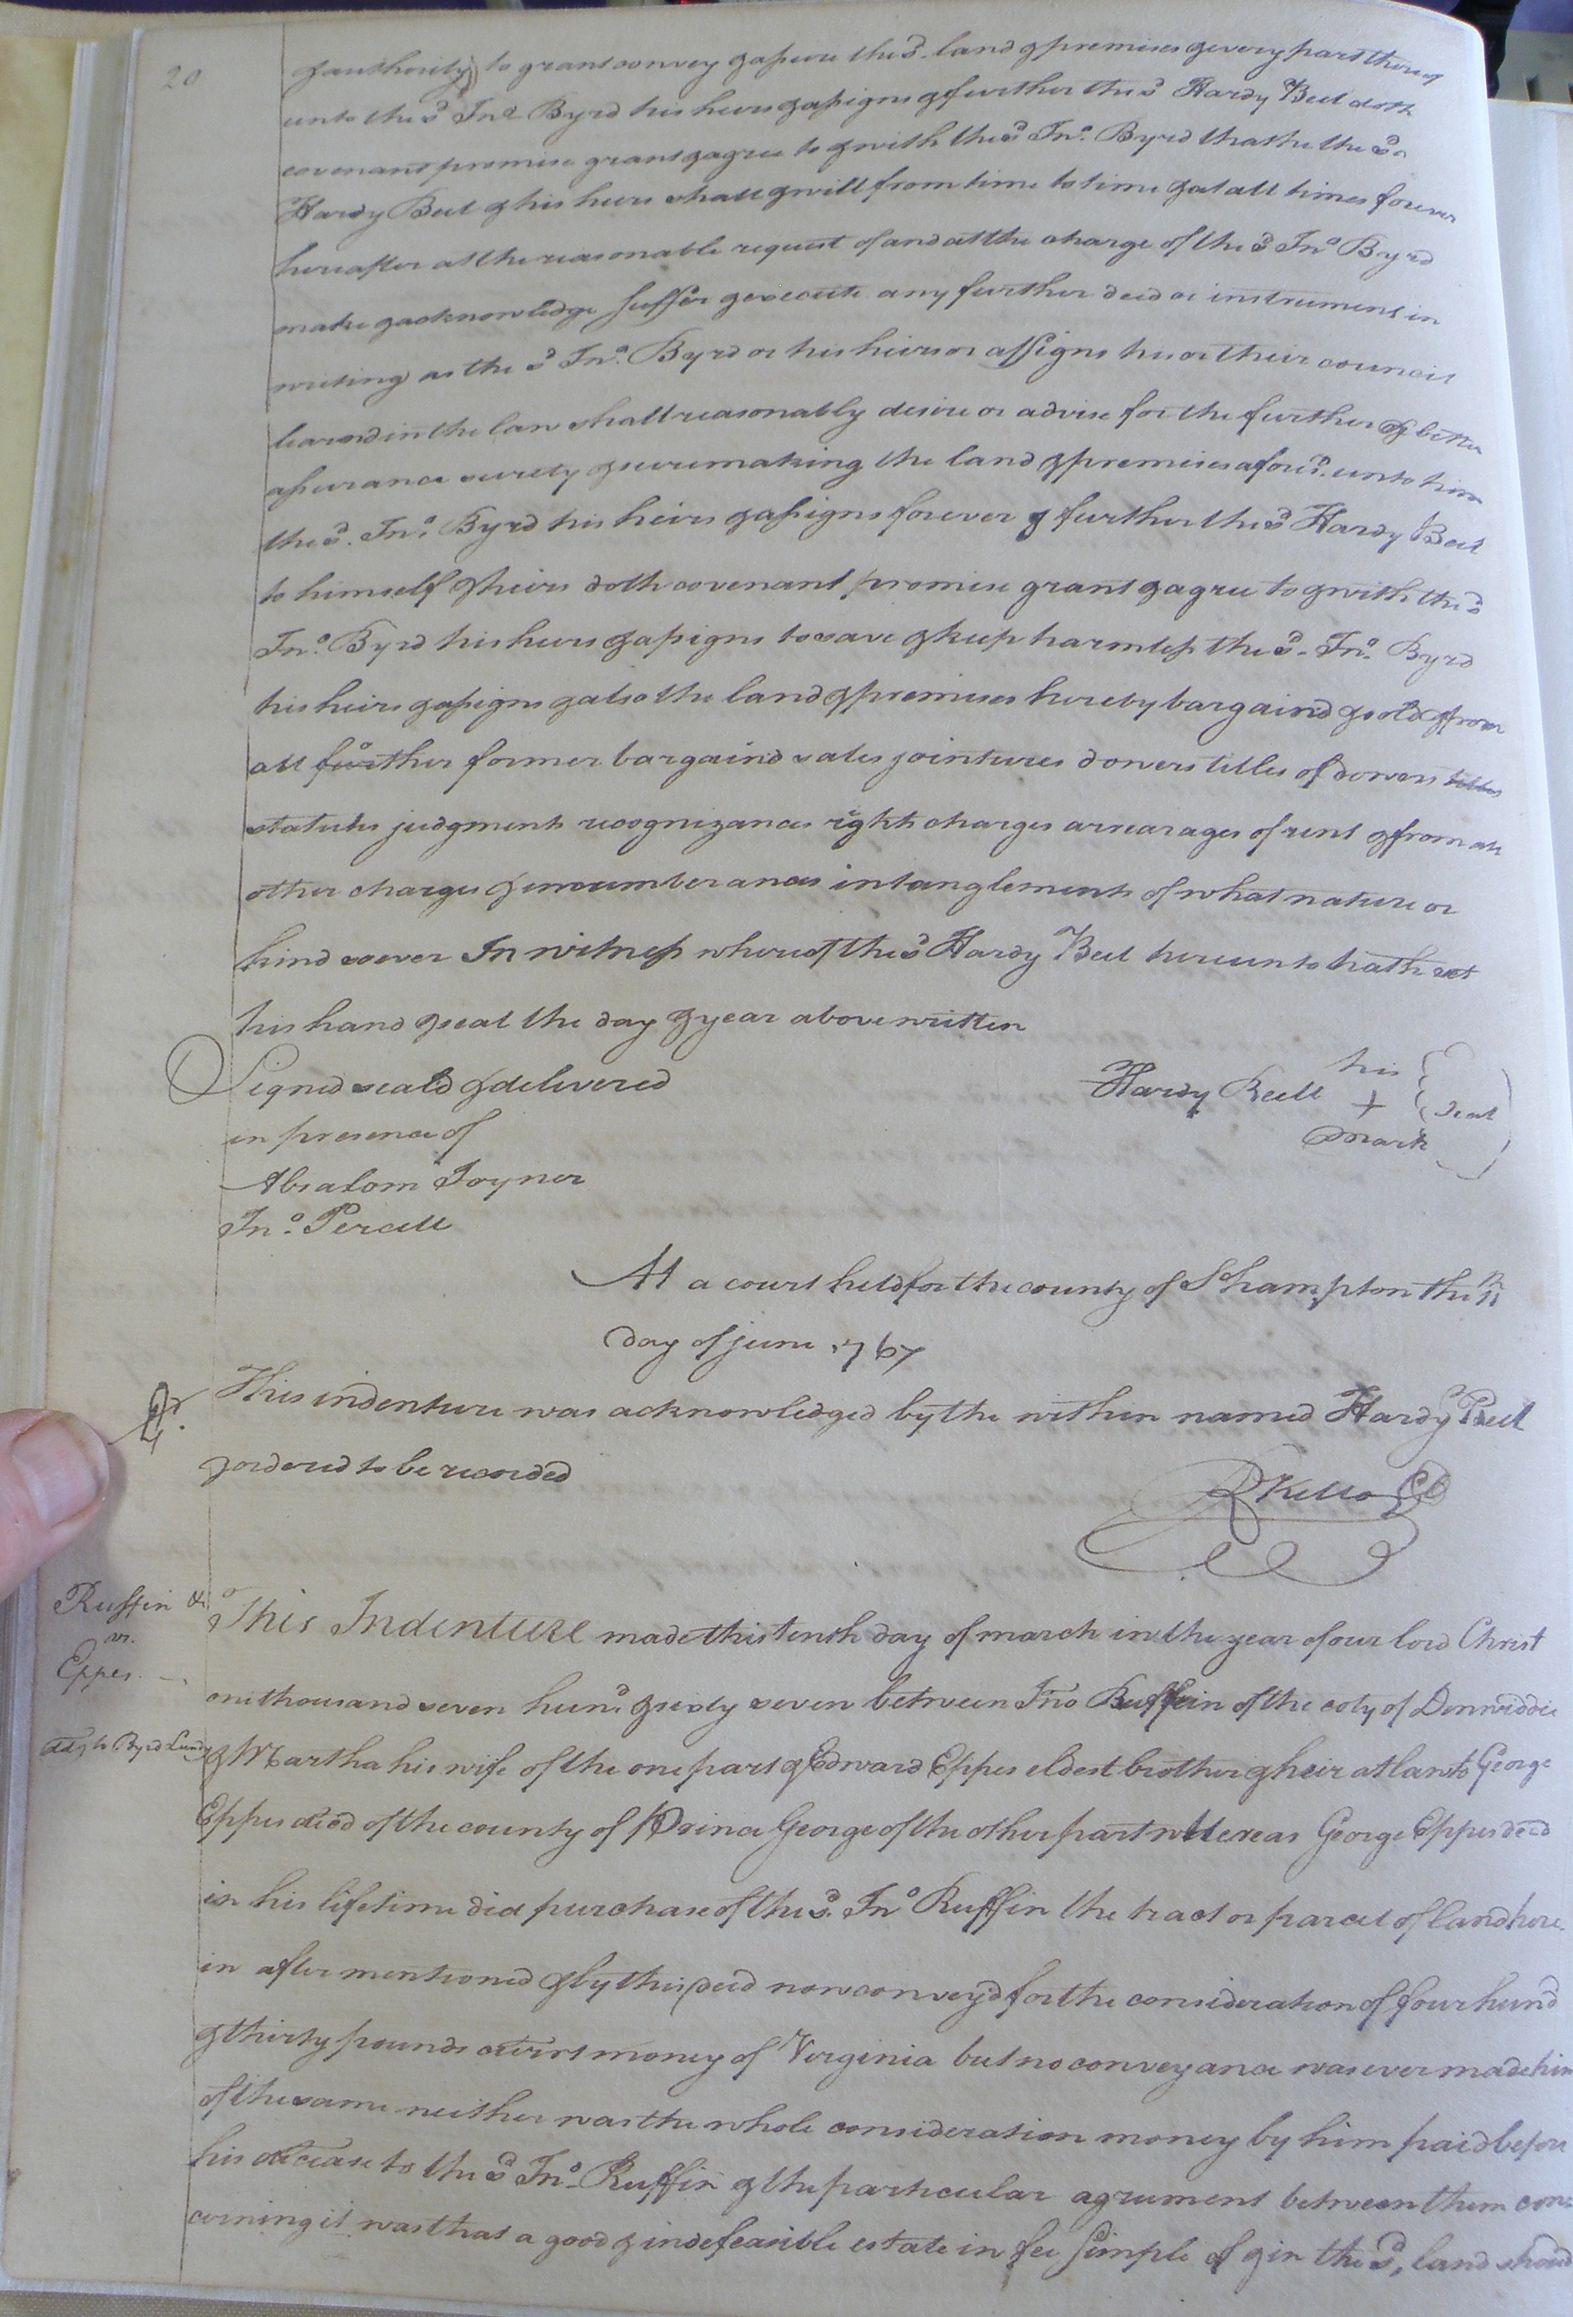 20
& authority to grant convey & assure the sd. land & premises & every part thereof
unto the sd Jno Byrd his heirs & assigns & further the sd Hardy Beel doth
covenant promise grant & agree to & with the sd Jno. Byrd that he the sd
Hardy Beel & his heirs shall & will from time to time & at all times forever
hereafter at the reasonable request of and at the charge of the sd Jno Byrd
make & acknowledge suffer & execute any further deed or instrument in
writing as the sd Jno. Byrd or his heirs or assigns his or their council
learned in the law shall reasonably desire or advise for the further & better
assurance surety & suremaking the land & premises aforesd. unto him
the sd. Jno. Byrd his heirs & assigns forever & further the sd Hardy Beel
to himself & heirs doth covenant promise grant & agree to & with the sd
Jno. Byrd his heirs & assigns to save & keep harmless the sd. Jno. Byrd
his heirs & assigns & also the land & premises hereby bargaind & sold & from
all further former bargaind sales jointures dowers titles of dowers titles
statutes judgments recognizances rights charges arrearages of rent & from all
other charges & incumberances intanglements of what nature or
kind soever In witness whereof the sd Hardy Beel hereunto hath set
his hand & seal the day & year above written
Signed seald & delivered
in presence of
Absalom Joyner
Jno. Percell
Hardy Beell his + mark seal
At a court held for the county of Shampton the 11th
day of june 1767
This indenture was acknowledged by the within named Hardy Beel
& ordered to be recorded
R Kello CC
Ruffin &
vs.
Eppes.
This Indenture made this tenth day of march in the year of our lord Christ
one thousand seven hund. & sixty seven between Jno Ruffin of the coty of Dinwiddie
& Martha his wife of the one part & Edward Eppes eldest brother & heir at law to George
Eppes decd of the county of Prince George of the other part whereas George Eppes decd
in his lifetime did purchase of the sd. Jno Ruffin the tract or parcel of land here-
in after mentioned & by this deed now conveyd for the consideration of four hund
& thirty pounds currt money of Virginia but no conveyance was ever made him
of the same neither was the whole consideration money by him paid before
his decease to the sd Jno. Ruffin & the particular agreement between them con=
cerning it was that a good & indefeasible estate in fee simple of & in the sd, land shoud